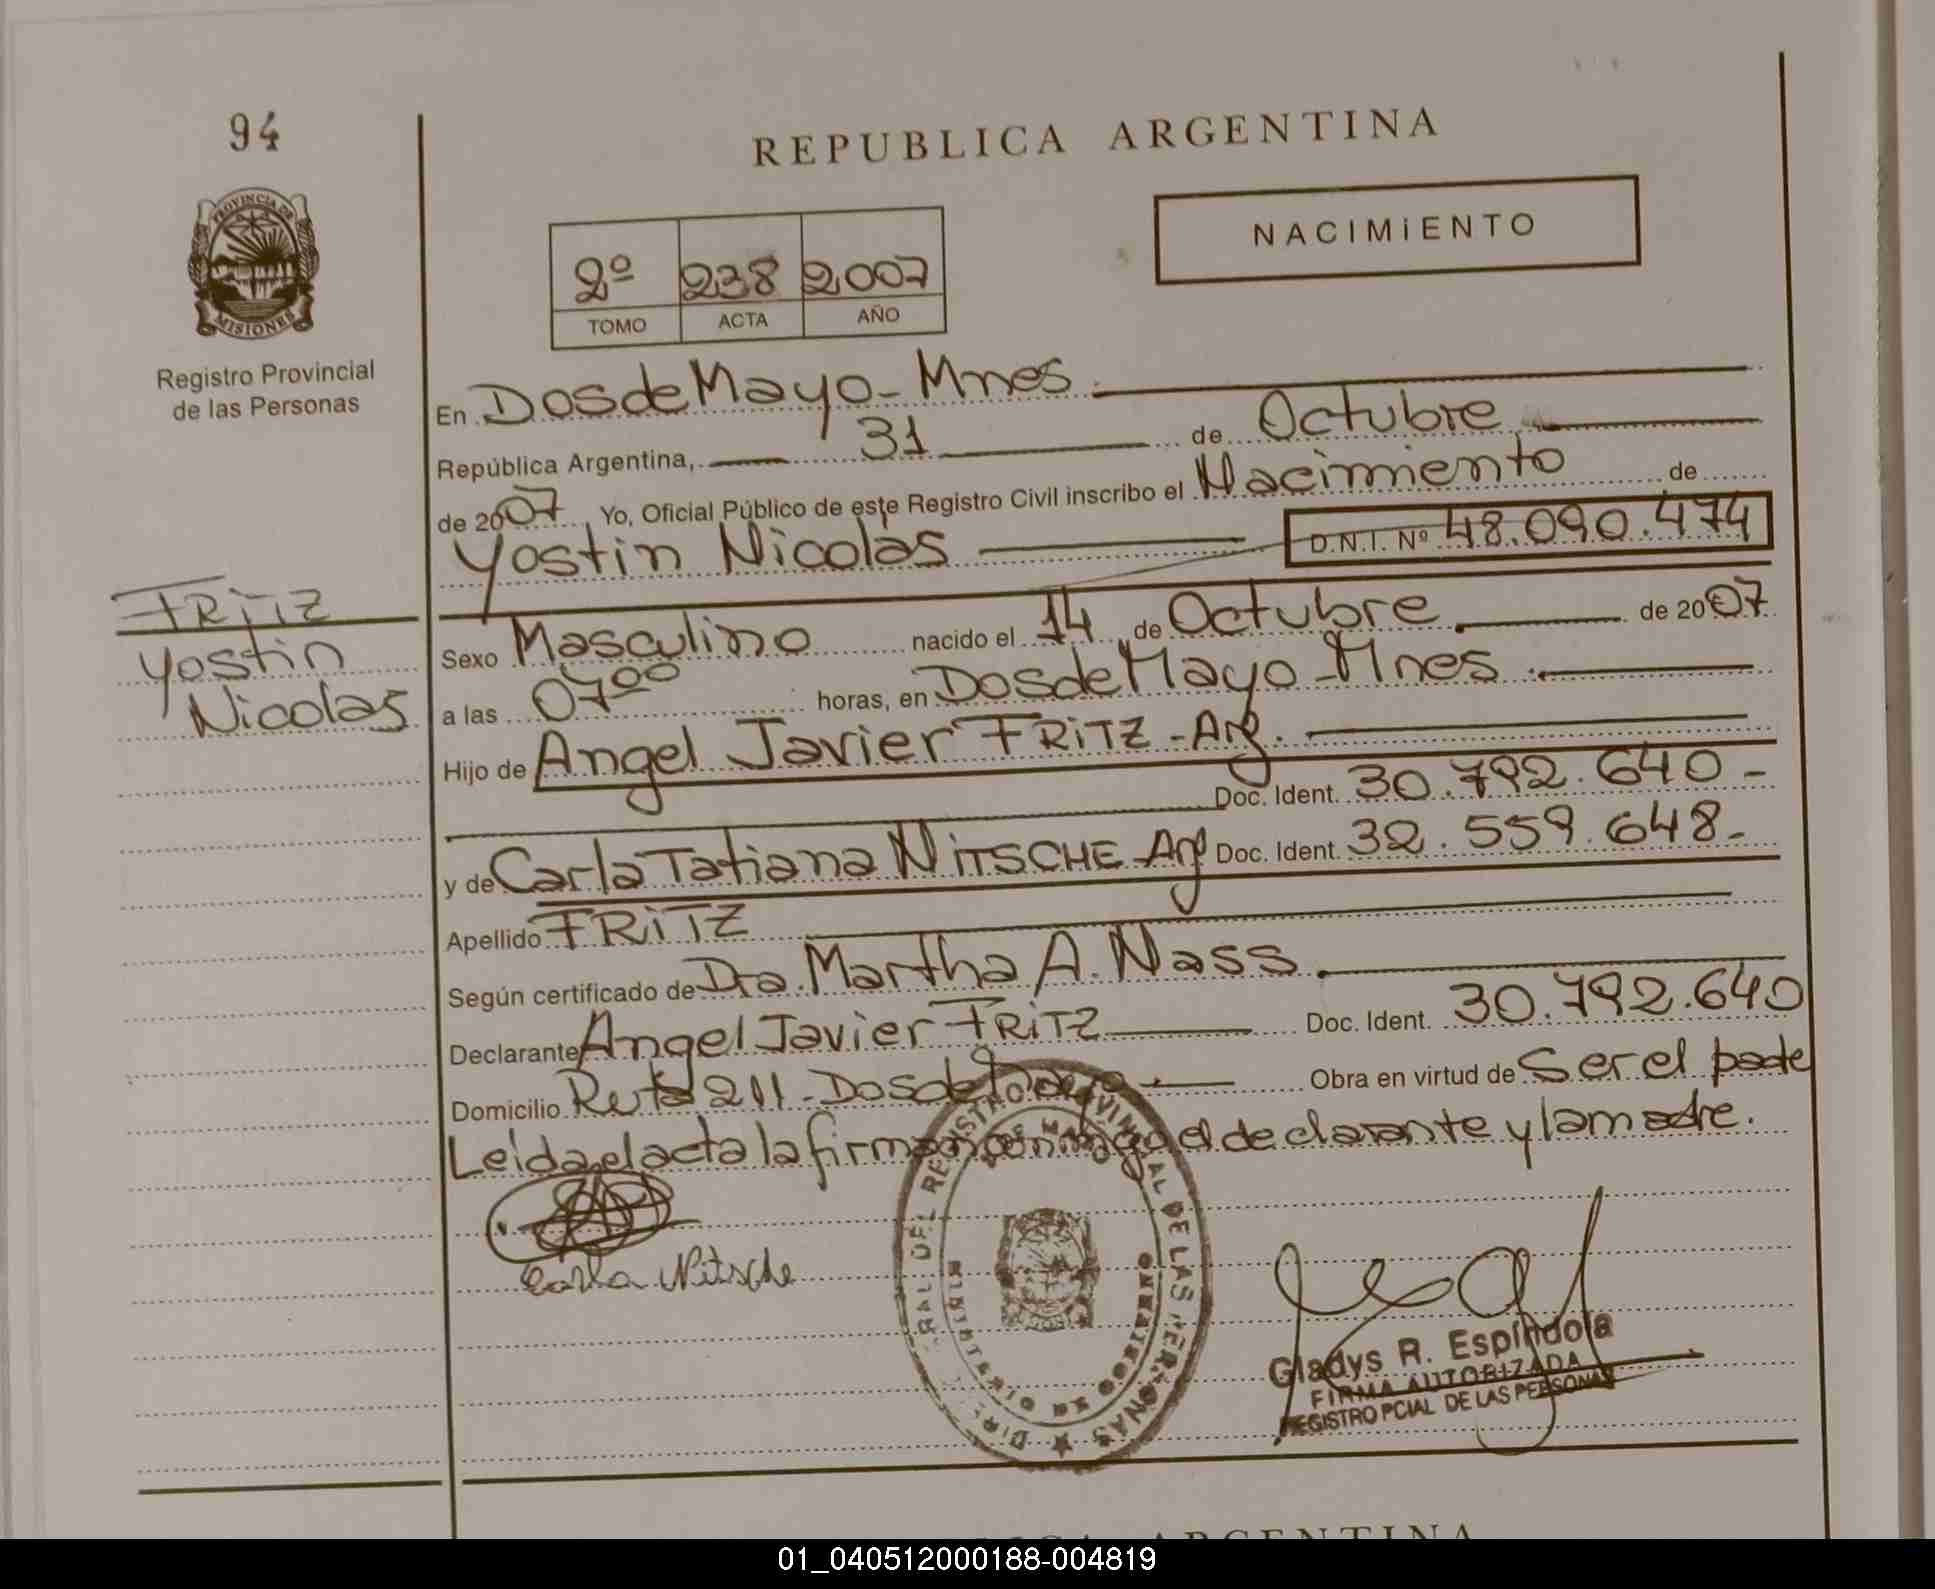 94
REPUBLICA ARGENTINA
PROVINCIA DE
MISIONES
NACIMIENTO
2º 238 2007
TOMO ACTA AÑO
Registro Provincial
de las Personas
En Dos de Mayo - Mnes
República Argentina, 31 de Octubre
de 2007 Yo, Oficial Público de este Registro Civil inscribo el Nacimiento de
Yostin Nicolas D.N.I. Nº 48.090.474
FRITZ
Yostin
Nicolas
Sexo Masculino nacido el 14 de Octubre de 2007
a las 07⁰⁰ horas, en Dos de Mayo - Mnes
Hijo de Angel Javier FRITZ - Arg.
Doc. Ident. 30.792.640 -
y de Carla Tatiana NITSCHE Arg Doc. Ident. 32.559.648 -
Apellido FRITZ
Según certificado de Dra. Martha A. Nass
Declarante Angel Javier FRITZ Doc. Ident. 30.792.640
Domicilio Ruta 211 - Dos de Mayo Obra en virtud de Ser el padre
Leida el acta la firman conmigo el declarante y la madre.
Carla Nitsche
Gladys R. Espíndola
FIRMA AUTORIZADA
REGISTRO PCIAL DE LAS PERSONAS
ARGENTINA
01_040512000188-004819